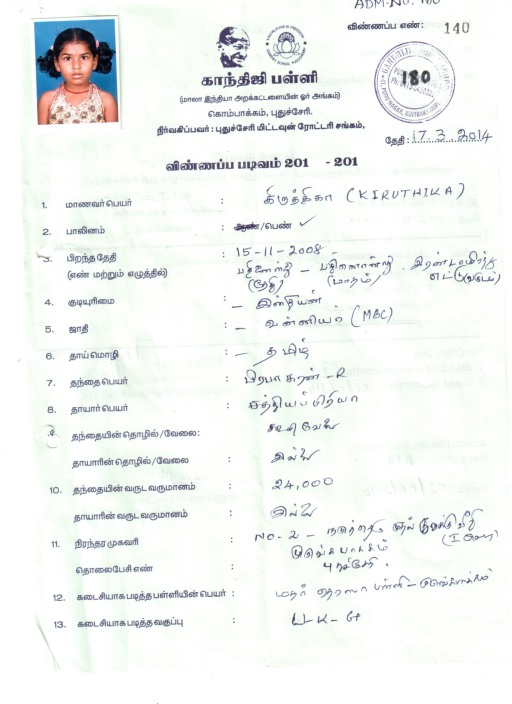 ADM-NO. 180
விண்ணப்ப எண்: 140
காந்திஜி பள்ளி
(மாலா இந்தியா அறக்கட்டளையின் ஓர் அங்கம்)
கொம்பாக்கம், புதுச்சேரி.
நிர்வகிப்பவர் : புதுச்சேரி மிட்டவுன் ரோட்டரி சங்கம்,
180
தேதி : 17.3.2014
விண்ணப்ப படிவம் 201 - 201
1. மாணவர் பெயர் : கிருத்திகா (KIRUTHIKA)
2. பாலினம் : ஆண்/பெண் ✓
3. பிறந்த தேதி : 15-11-2008 -
(எண் மற்றும் எழுத்தில்) (தேதி) (மாதம்)
4. குடியுரிமை : - இந்தியன்
5. ஜாதி : - வன்னியர் (MBC)
6. தாய்மொழி : - தமிழ்
7. தந்தை பெயர் : பிரபாகரன் -R
8. தாயார் பெயர் : சத்தியப்பிரியா
9. தந்தையின் தொழில்/வேலை: கூலிவேலை
தாயாரின் தொழில்/வேலை : இல்லை
10. தந்தையின் வருட வருமானம் : 24,000
தாயாரின் வருட வருமானம் : இல்லை
11. நிரந்தர முகவரி : NO-2 -
தொலைபேசி எண் :
12. கடைசியாக படித்த பள்ளியின் பெயர் : மதர் தெரஸா பள்ளி -
13. கடைசியாக படித்த வகுப்பு : U-K-G